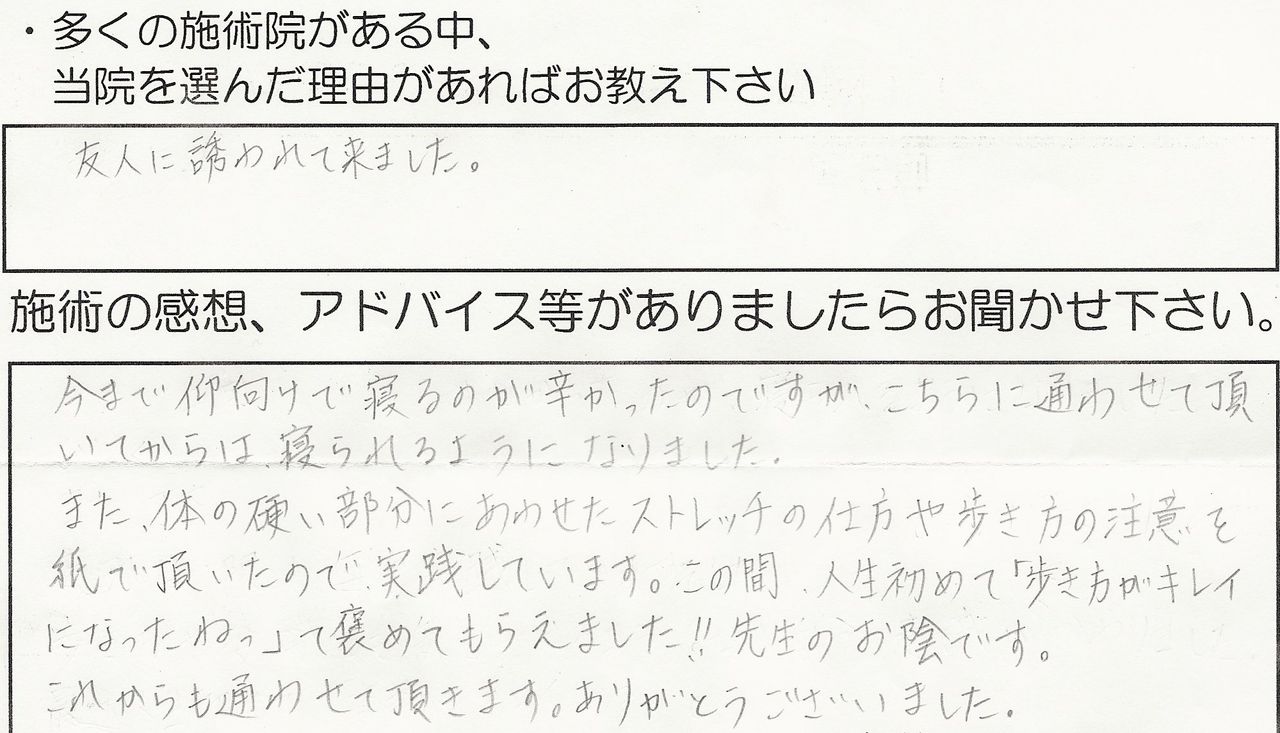 ・多くの施術院がある中、
当院を選んだ理由があればお教え下さい
友人に誘われて来ました。
施術の感想、アドバイス等がありましたらお聞かせ下さい。
今まで仰向けで寝るのが辛かったのですが、こちらに通わせて頂
いてからは、寝られるようになりました。
また、体の硬い部分にあわせたストレッチの仕方や歩き方の注意を
紙で頂いたので、実践しています。この間、人生初めて「歩き方がキレイ
になったねっ」て褒めてもらえました!!先生のお陰です。
これからも通わせて頂きます。ありがとうございました。